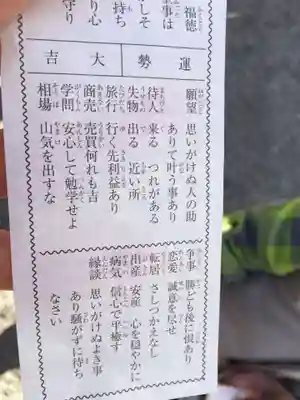 福徳
事は
しそ
持ち
り心
守り
運勢 大吉
願望 思いがけぬ人の助
ありて叶う事あり
待人 来る つれがある
失物 出る 近い所
旅行 行く先利益あり
商売 売買何れも吉
学問 安心して勉学せよ
相場 山気を出すな
争事 勝ども後に恨あり
恋愛 誠意を尽せ
転居 さしつかえなし
出産 安産 心を穏やかに
病気 信心で平癒す
縁談 思いがけぬよき事
あり騒がずに待ち
なさい